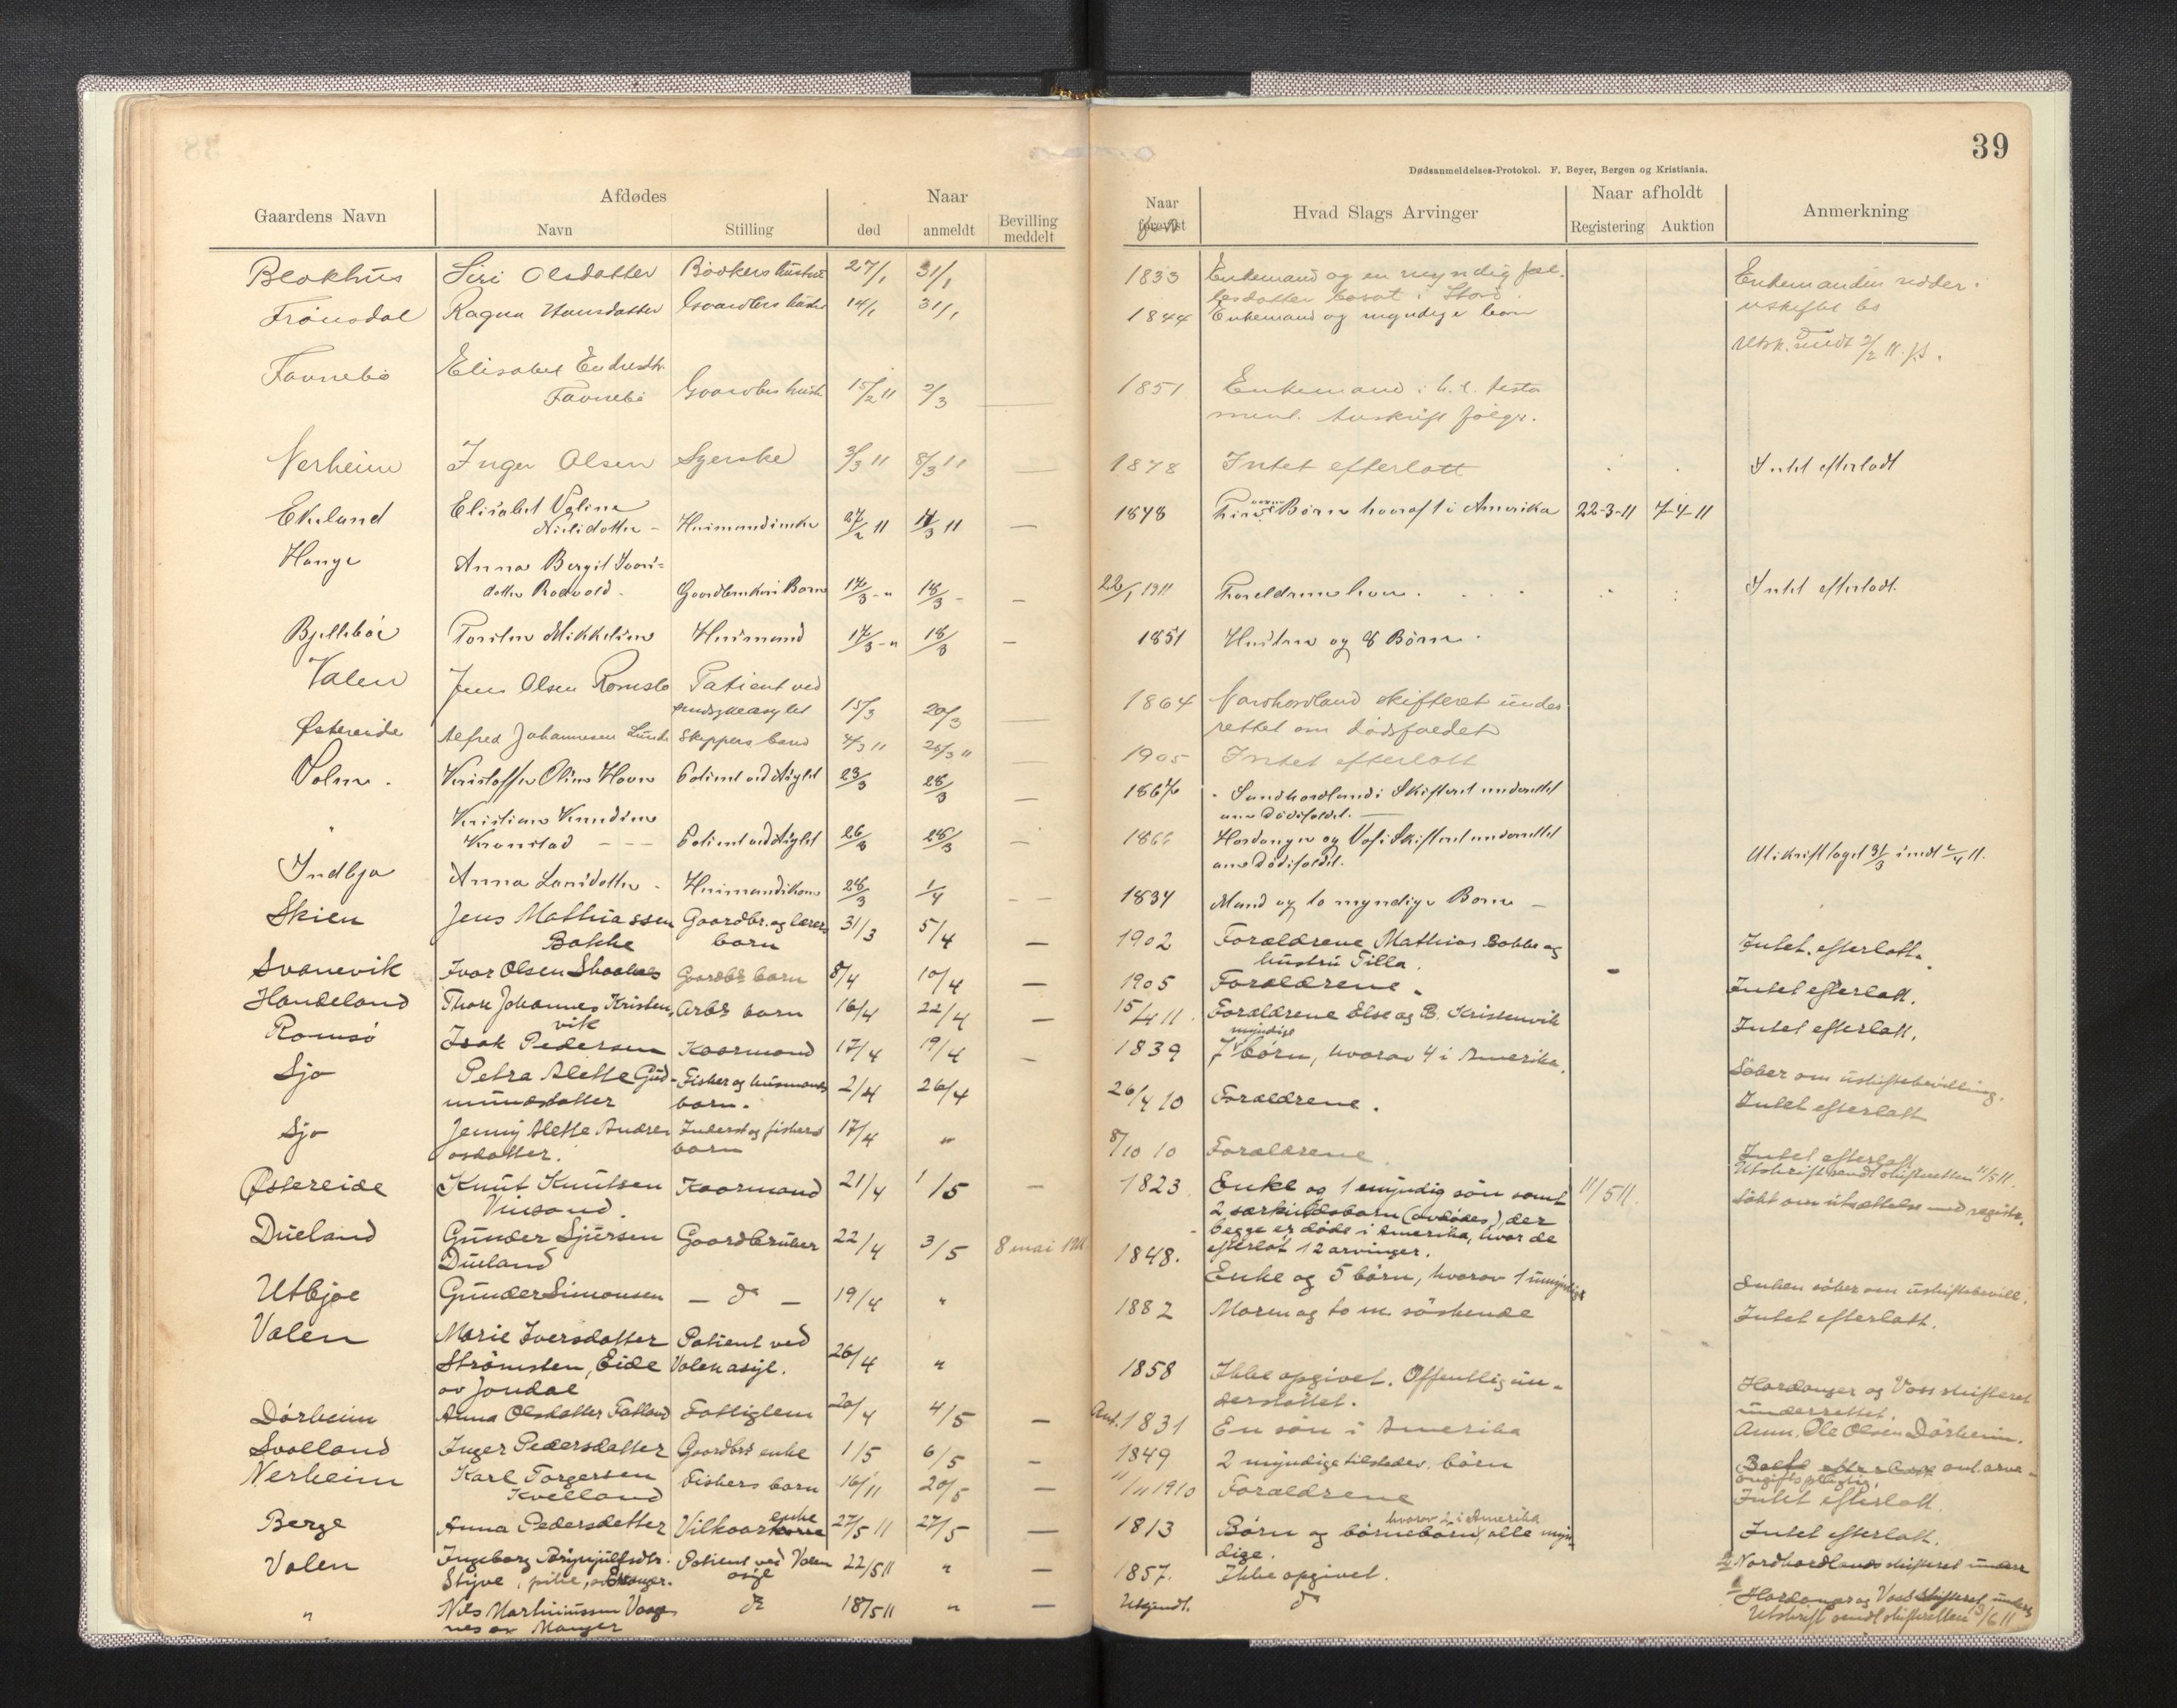 39
Dødsanmeldelses-Protokol. F. Beyer, Bergen og Kristiania.
Gaardens Navn
Afdødes
Navn
Stilling
Naar
død
anmeldt
Bevilling meddelt
Naar
født
Hvad Slags Arvinger
Naar afholdt
Registering
Auktion
Anmerkning
Blokhus Siri Olsdatter Bødkers hustru 27/1 31/1 1833 Enkemand og en myndig fæl- Enkemanden sidder i
lesdatter bosat i Stord. uskiftet bo
Frønsdal Ragna Hansdatter Gaardbrs hustru 14/1 31/1 1844 Enkemand og myndige børn
Utsk. sendt 2/2 11.
Favnebø Elisabet Endresdtr.
Favnebø Gaardbrs hustru 15/2 11 2/3 1851 Enkemand i h.t. testa
ment. Avskrift følger.
Nerheim Inger Olsen Syerske 3/3 11 8/3 11 — 1878 Intet efterlatt Intet efterladt
Ekeland Elisabet
Nielsdatter - Husmandsenke 27/2 11 11/3 11 — 1848 Børn hvoraf 1 i Amerika 22-3-11 7-4-11
Hauge Anna Bergit Ivars-
datter Gaardbrukers Barn 17/3 - " 18/3 - — 22/1 1911 Forældrene have. Intet efterladt.
Bjellebøe Torsten Mikkelsen Husmand 17/3 - " 18/3 — 1851 Hustru og 8 Børn.
Valen Jens Olsen Romslo Patient ved
sindsykeasylet 15/3 20/3 — 1864 Nordhordland skifteret under
rettet om dødsfaldet
Østereide Alfred Johannesen Lunde Skippers barn 4/3 11 20/3 11 — 1905 Intet efterlatt
Valen. Kristoffer Olsen Hovn Patient ved Asylet 23/3 28/3 — 1867 Sundhordlands Skifteret underrettet
om Dødsfaldet.
" Kristian Knudsen
Kronstad - - - Patient ved Asylet 26/3 28/3 — Hardanger og Voss Skifteret underrettet
om Dødsfaldet. Utskrift taget 31/3 sendt 1/4 11.
Indbjo Anna Larsdatter - Husmandskone 28/3 1/4 - - 1834 Mand og to myndige Børn —
Skien Jens Mathiassen Gaardbr. og lærers 31/3 5/4 — 1902 Forældrene Mathias Bakke og Intet efterlatt.
Bakke barn hustru Tilla.
Svanevik Ivar Olsen Gaardbs barn 8/4 10/4 — 1905 Forældrene. Intet efterlatt.
Handeland Thor Johannes Kristen- Arbs barn 16/4 22/4 — 15/4 11. Forældrene Else og B. Kristenvik Intet efterlatt.
vik myndige
Romsø Isak Pedersen Kaarmand 17/4 19/4 — 1839 7 børn, hvorav 4 i Amerika. Søker om uskiftebevilling.
Sjo Petra Alette Gud- Fisker og husmands 2/4 26/4 26/4 10 Forældrene. Intet efterlatt
mundsdatter barn.
Sjo Jenny Alette Andrea Inderst og fiskers 17/4 " 8/10 10 Forældrene. Intet efterlatt
osdatter. barn Utskrift sendt skifteretten 11/5 11.
Østereide Knut Knutsen Kaarmand 21/4 1/5 — 1823 Enke og 1 myndig søn samt 11/5 11. søkt om utsættelse med registr.
Vinsand. 2 særkuldsbarn (avdødes), der
begge er døde i Amerika, hvor de
efterlot 12 arvinger.
Dueland Gunder Sjursen Gaardbruker 22/4 3/5 8 mai 1911 1848. Enke og 5 børn, hvorav 1 umyndige Enken søker om uskiftebevill.
Dueland
Utbjoe Gunder Simonsen — do — 19/4 " 1882 Moren og to m. søskende Intet efterlatt.
Valen Marie Iversdatter Patient ved
Strømsten, Eide Valen asyl. 26/4 " 1858 Ikke opgivet. Offentlig un- Hardanger og Voss skifteret
av Jondal derstøttet. underrettet.
Dørheim Anna Olsdatter Fatland Fattiglem 20/4 4/5 — Ant. 1831 En søn i Amerika Anm. Ole Olsen Dørheim.
Svolland Inger Pedersdatter Gaardbrs enke 1/5 6/5 — 1849 2 myndige tilstedev. børn ant. arve-
avgiftspligtig.
Nerheim Karl Torgersen Fiskers barn 16/11 20/5 — 11/11 1910 Forældrene Intet efterlatt
Kvelland
Berge Anna Pedersdatter Vilkaarsenke 27/5 11 27/5 — 1813 Børn og børnebørn, hvorav 2 i Amerika alle myn Intet efterlatt.
dige.
Valen Ingeborg Brynjulfsdtr. Patient ved Valen 22/5 11 " — 1857. Ikke opgivet. Nordhordlands skifteret underr
Styve, pike, asyl
" Nils Martinussen Vaag do 18/5 11 " — Ukjendt. do Hardanger og Voss skifteret underr
nes av Manger Utskrift sendt skifteretten 13/6 11.